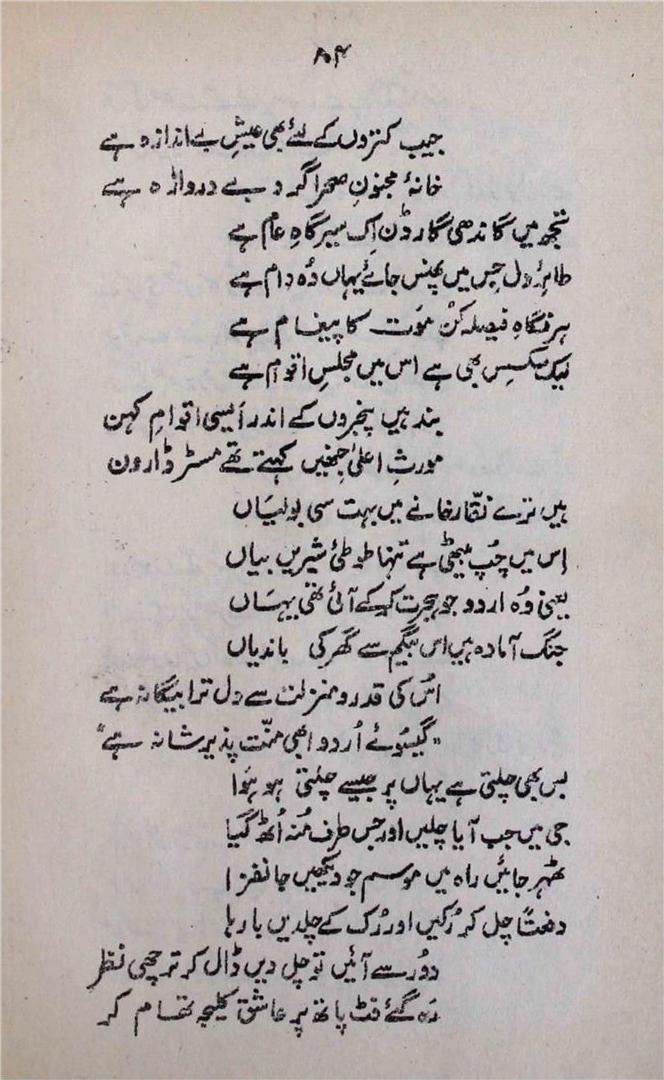 ۸۰۴
جیب کتروں کے لئے بھی عیشِ بے اندازہ ہے
خانۂ مجنونِ صحرا گرد بے دروازہ ہے
تجھ میں گاندھی گارڈن اِک سیرگاہِ عام ہے
طائرِ دل جس میں پھنس جائے یہاں وُہ دام ہے
ہر نگاہِ فیصلہ کُن مَوت کا پیغام ہے
لیک سکسس بھی ہے اس میں مجلسِ اقوام ہے
بند ہیں پنجروں کے اندر اَیسی اقوامِ کہن
مورثِ اعلیٰ جنھیں کہتے تھے مسٹر ڈارون
ہیں ترے نقّار خانے میں بہت سی بولیَاں
اِس میں چُپ بیٹھی ہے تنہا طوطیٔ شیریں بیاں
یعنی وُہ اردو جو ہجرت کرکے آئی تھی یہَاں
جنگ آمادہ ہیں اس بیگم سے گھر کی باندیاں
اُس کی قدر و منزلت سے دل ترا بیگانہ ہے
"گیسُوئے اُردو ابھی منّت پذیرِ شانہ ہے"
بس بھی چلتی ہے یہاں پر جیسے چلتی ہو ہَوا
جی میں جب آیا چلیں اور جس طرف مُنہ اُٹھ گیَا
ٹھہر جائیں راہ میں موسم جو دیکھیں جانفزا
دفعتاً چل کر رُکیں اور رُک کے چلدیں بارہا
دُور سے آئیں تو چل دیں ڈال کر ترچھی نظر
رَہ گئے فٹ پاتھ پر عاشق کلیجہ تھام کر